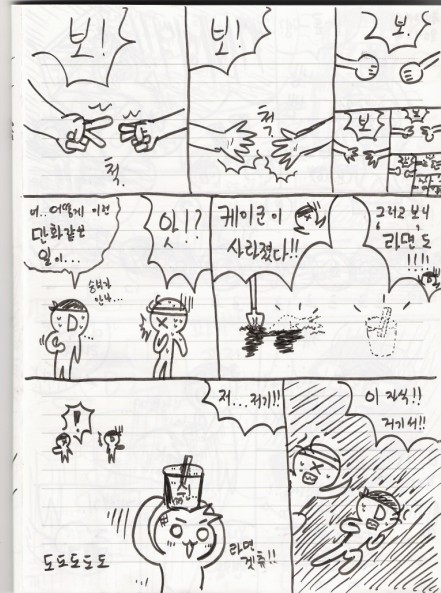 보!
척.
보!
척.
보.
보
너..어떻게 이런
만화같은
일이...
승부가
안나...
앗!?
케이군이
사라졌다!!
그리고 보니
'라면'도
!!!!
저...저기!!
라면
겟츄!!
도도도도도
이 자식!!
저기서!!